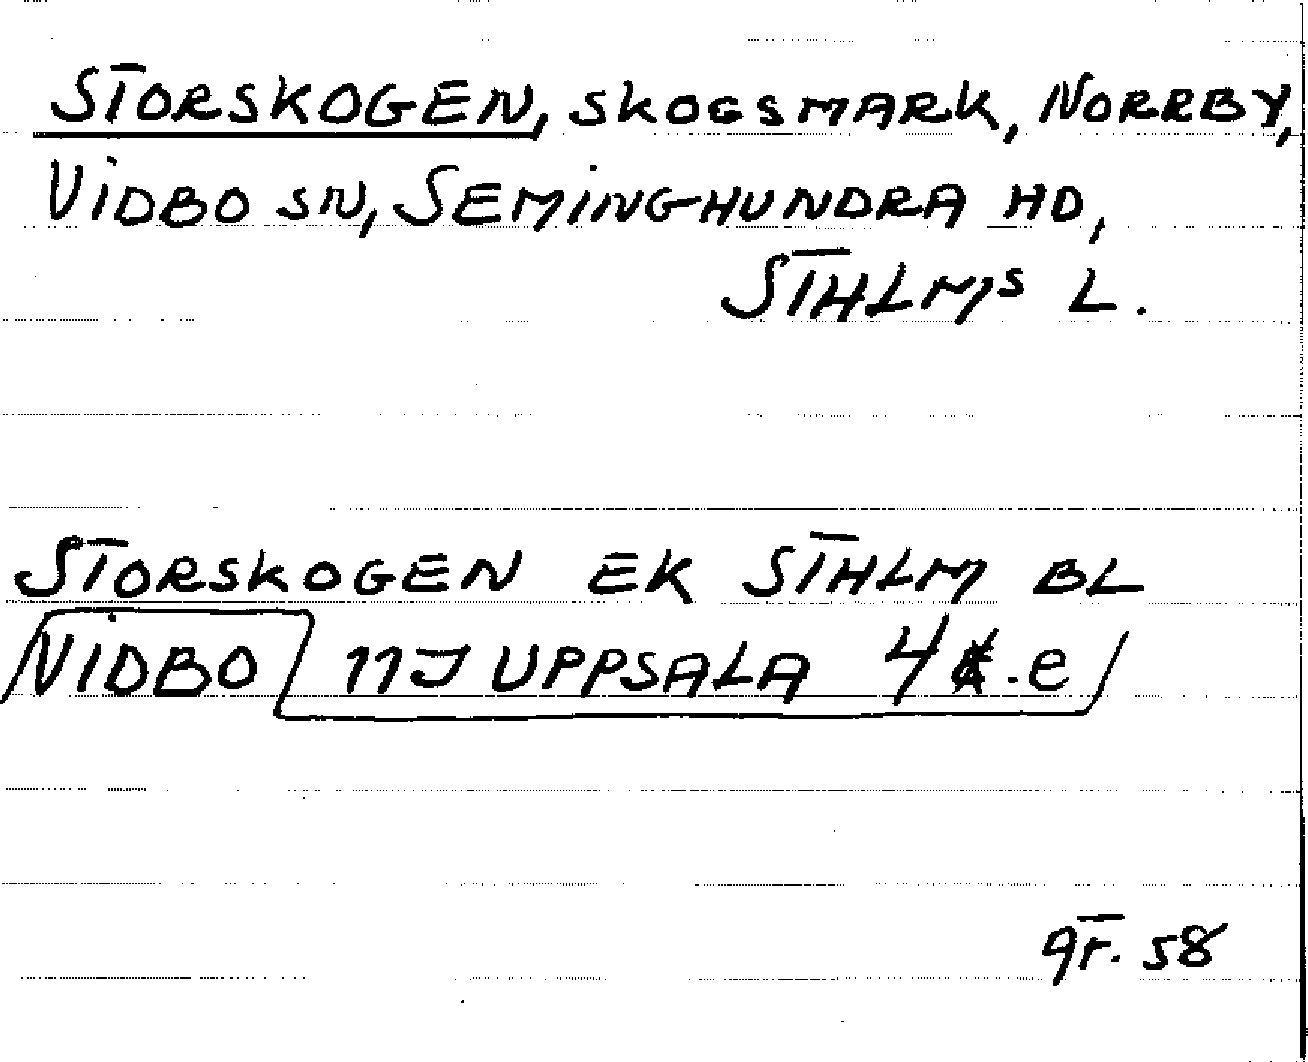 STORSKOGEN, SKOGSMARK, NORRBY,
VIDBO SN, SEMINGHUNDRA HD,
STHLMS L.
STORSKOGEN EK STHLM BL
VIDBO 11J UPPSALA 4 .e
58